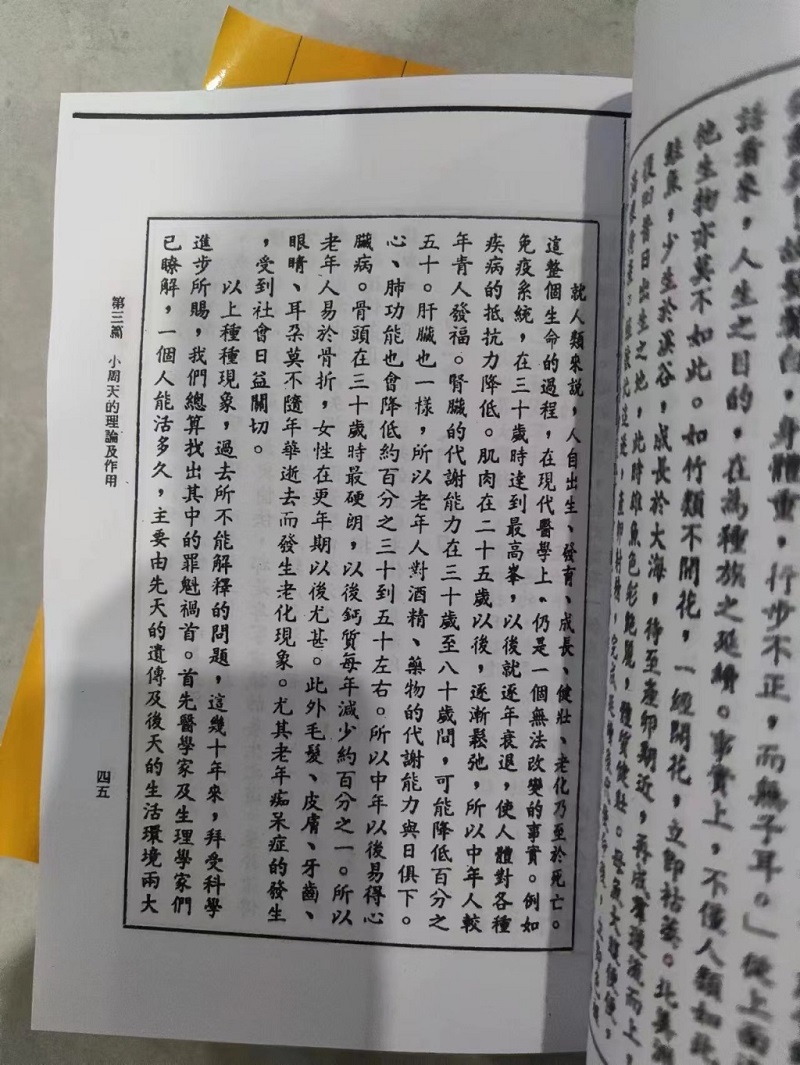 故髮鬢白，身體重，行步不正，而無子耳。」從上面
話看來，人生之目的，在為種族之延續。事實上，不僅人類如此
他生物亦莫不如此。如竹類不開花，一經開花，立即枯萎。北美
鮭魚，少生於溪谷，成長於大海，待至產卵期近，再成羣逆流而上，
復回昔日出生之地，此時雄魚色彩艷麗，體質健壯。母魚大腹便便，
就人類來説，人自出生、發育、成長、健壯、老化乃至於死亡。
這整個生命的過程，在現代醫學上、仍是一個無法改變的事實。例如
免疫系統，在三十歲時達到最高峯，以後就逐年衰退，使人體對各種
疾病的抵抗力降低。肌肉在二十五歲以後，逐漸鬆弛，所以中年人較
年青人發福。腎臟的代謝能力在三十歲至八十歲間，可能降低百分之
五十。肝臟也一樣，所以老年人對酒精、藥物的代謝能力與日俱下。
心、肺功能也會降低約百分之三十到五十左右。所以中年以後易得心
臟病。骨頭在三十歲時最硬朗，以後鈣質每年減少約百分之一。所以
老年人易於骨折，女性在更年期以後尤甚。此外毛髮、皮膚、牙齒、
眼睛、耳朵莫不隨年華逝去而發生老化現象。尤其老年痴呆症的發生
，受到社會日益關切。
以上種種現象，過去所不能解釋的問題，這幾十年來，拜受科學
進步所賜，我們總算找出其中的罪魁禍首。首先醫學家及生理學家們
已瞭解，一個人能活多久，主要由先天的遺傳及後天的生活環境兩大
第三篇 小周天的理論及作用
四五